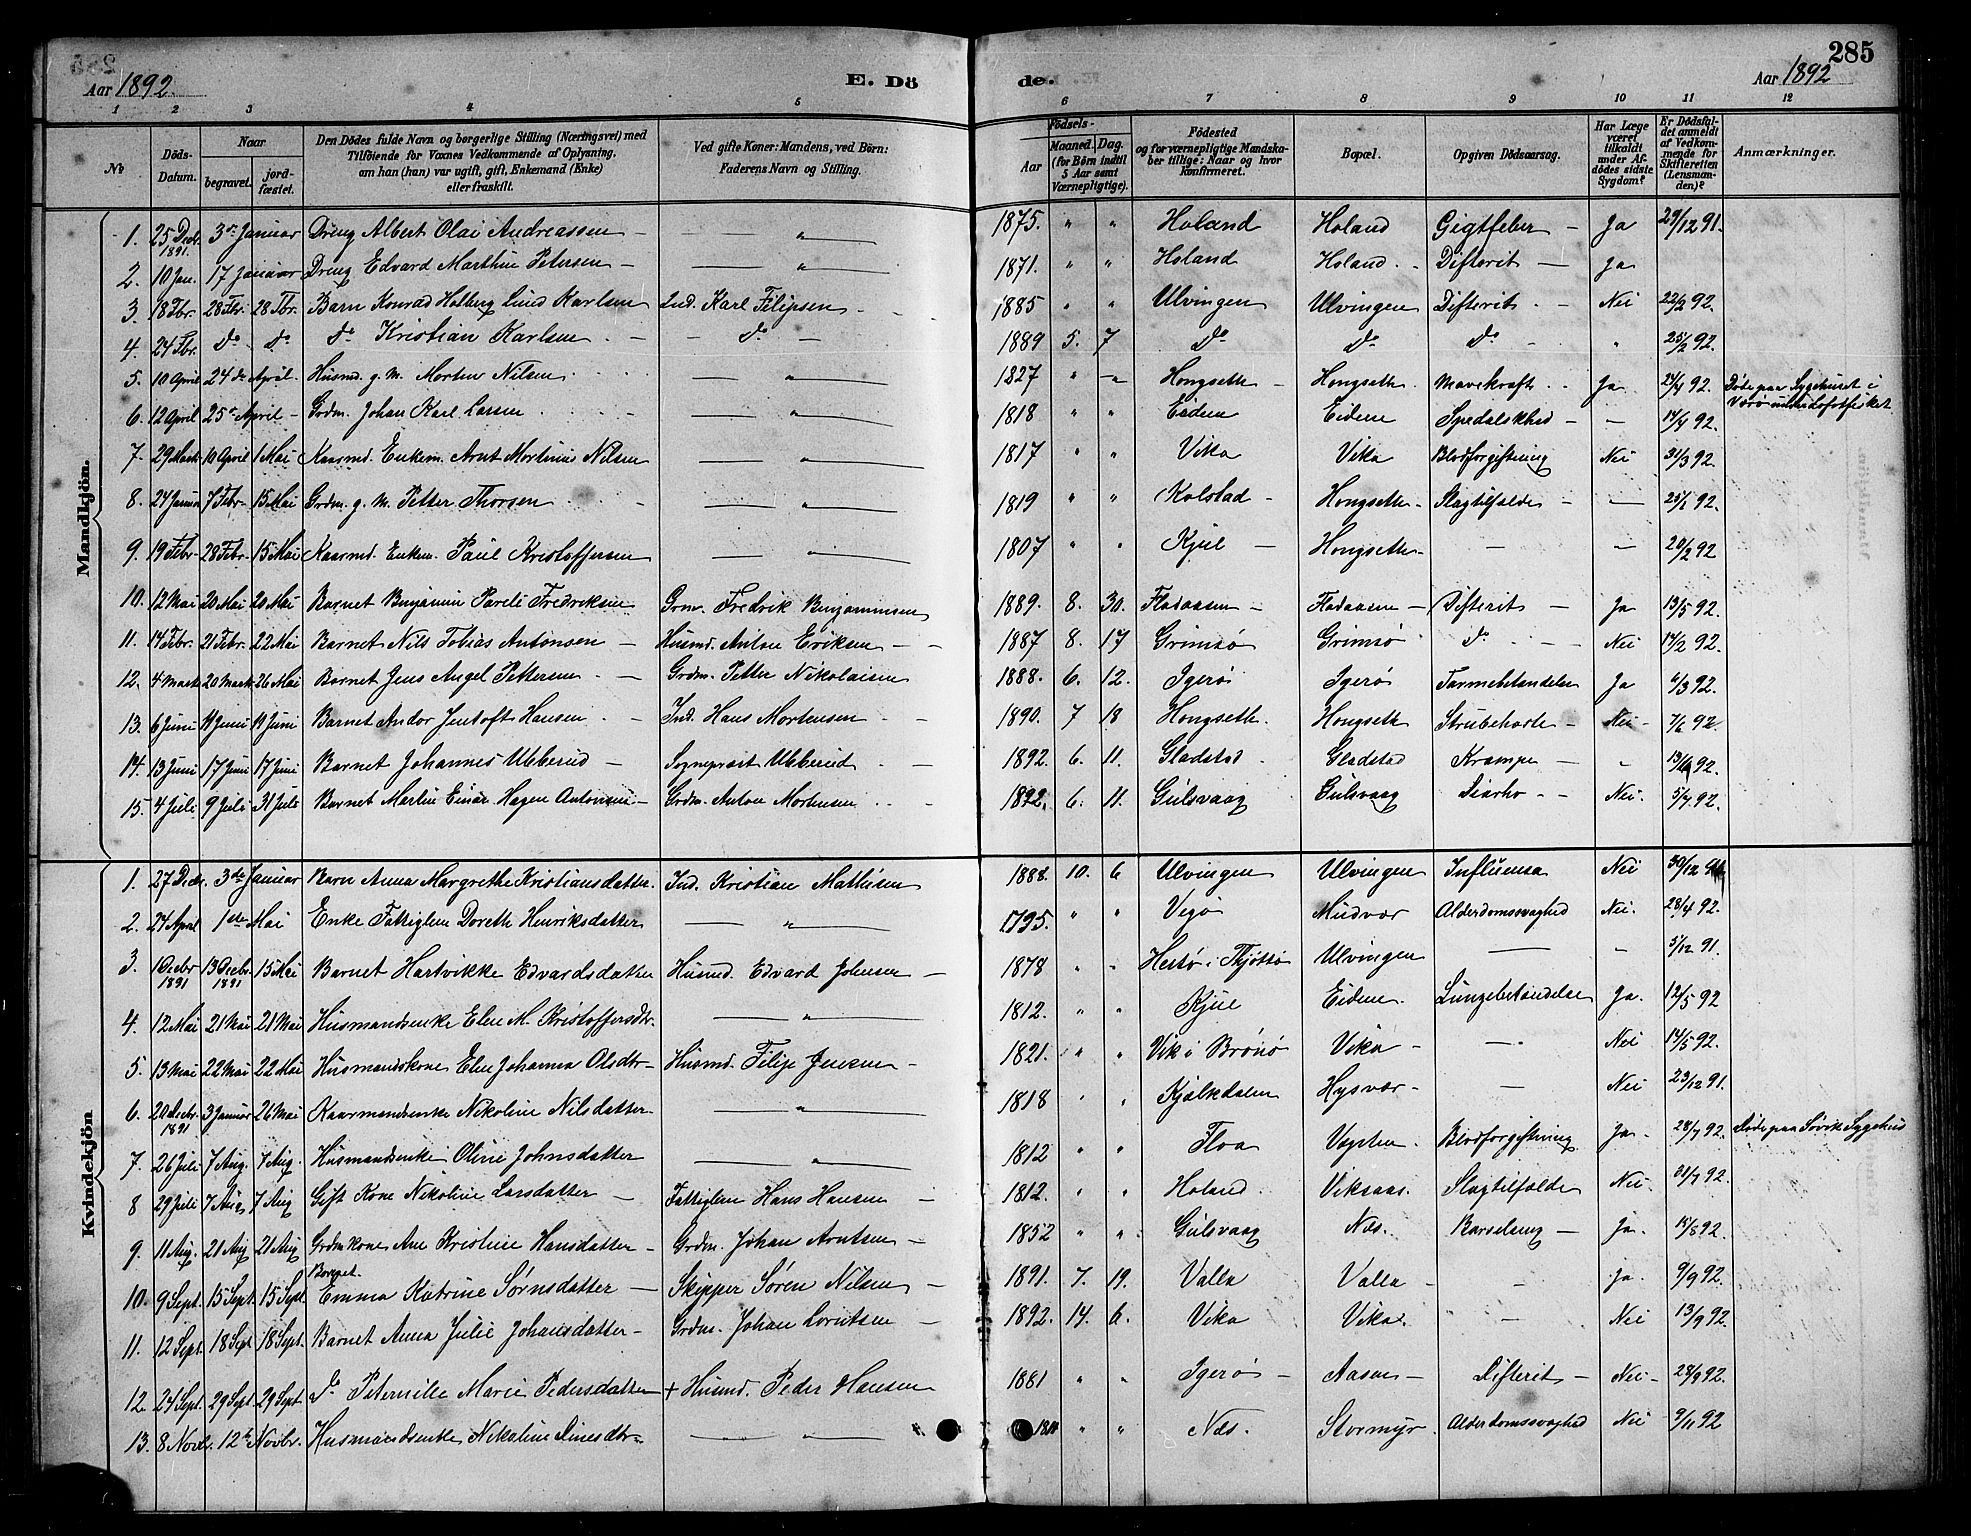 285
Aar 1892.
E. Dö
de.
Aar 1892
1 2 3 4 5 6 7 8 9 10 11 12
№ Döds-Datum. Naar begravet. jord-fæstet. Den Dödes fulde Navn og borgerlige Stilling (Næringsvei) med Tilföiende for Voxnes Vedkommende af Oplysning, om han (hun) var ugift, gift, Enkemand (Enke) eller fraskilt. Ved gifte Koner: Mandens, ved Börn: Faderens Navn og Stilling. Födsels- Aar Maaned. Dag. (for Börn indtil 5 Aar samt Værnepligtige). Födested og for værnepligtige Mandskaber tillige: Naar og hvor konfirmeret. Bopæl. Opgiven Dödsaarsag. Har Læge været tilkaldt under Afdödes sidste Sygdom? Er Dödsfaldet anmeldt af Vedkommende for Skifteretten (Lensmanden)? Anmærkninger.
Mandkjön.
1. 25 Decbr. 1891. 3die Januar Dreng Albert Olai Andreassen — " — 1875. " " Holand Holand Gigtfeber — Ja 29/12 91.
2. 10 Jan. 17 Januar Dreng Edvard Marthin Petersen — " — 1871. " " Holand Holand. Difterit — Ja
3. 18 Fbr. 28 Fbr. 28 Fbr. Barn Konrad Holberg Lund Karlsen Ind. Karl Filipsen 1885 " " Ulvingen Ulvingen Difterit Nei 22/2 92.
4. 24 Fbr. do do do Kristian Karlsen — do — 1889 5. 7 do do do " 25/2 92.
5. 10 April 24de April. Husmd. g. M. Morten Nilsen — " — 1827 " " Hongseth Hongseth. Mavekræft Ja 24/4 92. Døde paa Sygehuset i
6. 12 April 25de April — Grdm. Johan Karl Larsen — " — 1818 " " Eidem Eidem Spedalskhed — 14/4 92. Værø Lofotfisket
7. 29 Marts 10 April 1 Mai Kaarmd. Enkem. Arnt Mortinus Nilsen — " — 1817 " " Vika Vika Blodforgiftning Nei 31/3 92.
8. 24 Januar 7 Febr. 15 Mai Grdm. g. M. Petter Thorsen — " — 1819 " " Kolstad — Hongseth Slagtilfælde — 25/1 92.
9. 19 Febr 28 Febr. 15 Mai Kaarmd. Enkem. Paul Kristoffersen — " — 1807 " " Kjul — Hongseth — — 20/2 92
10. 12 Mai 20 Mai 20 Mai Barnet Benjamin Pareli Fredriksen Grm. Fredrik Benjaminsen 1889. 8. 30. Flodaasen — Flodaasen — Difterit — Ja 13/5 92.
11. 14 Febr. 21 Febr. 22 Mai Barnet Nils Tobias Antonsen — Husmd. Anton Eriksen — 1887 8. 17 Grimsø Grimsø do Nei 17/2 92.
12. 4 Marts 20 Marts 26 Mai Barnet Jens Angel Pettersen Grdm. Petter Nikolaisen 1888. 6. 12. Igerø Igerø Tarmebetændelse Ja 6/3 92.
13. 6 Juni 19 Juni 19 Juni Barnet Andor Jentoft Hansen Ind. Hans Mortensen 1890. 7 18 Hongseth. Hongseth Strubehoste Nei 7/6 92.
14. 13 Juni 17 Juni 17 Juni Barnet Johannes Ubberud — Sogneprest Ubberud — 1892. 6. 11. Gladstad Gladstad Krampe — " 13/6 92.
15. 4 Juli. 9 Juli 31 Juli Barnet Martin Einar Hagen Antonsen Grdm. Anton Mortensen 1892. 6. 11. Gulsvaag Gulsvaag Diarhø Nei. 5/7 92.
Kvindekjön
1. 27 Decbr. 3die Januar Barn Anna Margrethe Kristiansdatter. Ind. Kristian Mathisen 1888. 10. 6 Ulvingen Ulvingen Influensa Nei 30/12 91.
2. 24 April 1ste Mai Enke Fattiglem Doreth Henriksdatter — " — 1795. " " Vegø Mudvær Alderdomssvaghed Nei. 28/4 92.
3. 1 Decbr 1891 13 Decbr 1891 15 Mai Barnet Hartvikke Edvardsdatter Husmd. Edvard Johnsen 1878 " " Hestø i Thjøttø Ulvingen — — 5/12 91.
4. 12 Mai 21 Mai 21 Mai Husmandsenke Elen M. Kristoffersdtr. — " — 1812. " " Kjul Eidem. Lungebetændelse Ja. 12/5 92
5. 13 Mai 22 Mai 22 Mai Husmandskone Elen Johanna Olsdtr — Husmd. Filip Jensen 1821. " " Vik i Brønø Vika — Nei 14/5 92.
6. 20 Decbr. 1891 3 Januar 26 Mai Kaarmandsenke Nikoline Nilsdatter — " — 1818 " " Kjølkdalen Hysvær — — Nei 23/12 91.
7. 26 Juli 7 Aug. 7 Aug. Husmandsenke Oline Johnsdatter — " — 1812 " " Floa Vegsten. Blodforgiftning Ja. 28/7 92. Døde paa Søvik Sygehus
8 29 Juli 7 Aug 7 Aug Gift Kone Nikoline Larsdatter — Fattiglem Hans Hansen 1812. " " Holand. Viksaas. Slagtilfælde Nei. 31/7 92.
9. 11 Aug. 21 Aug 21 Aug Grdmkone Ane Kristine Hansdatter — Grdm. Johan Arntsen — 1852 " " Gulsvaag Næs. Barseleng — Ja. 15/8 92.
10. 9 Sept. 15 Sept. 15 Sept. Barnet. Emma Katrine Sørnsdatter — Skipper Søren Nilsen — 1891. 7. 19. Valla Valla — — Ja. 9/9 92.
11. 12 Sept. 18 Sept 18 Sept. Barnet Anna Julie Johansdatter — Grdm. Johan Lorntsen — 1892. 14. 6. Vika Vika. — Nei 13/9 92.
12. 24 Sept. 29 Sept. 29 Sept do Peternille Marie Pedersdatter + Husmd. Peder Hansen 1881 " " Igerø — Aasen — Difterit — Nei — 28/9 92.
13. 8 Novbr. 12te Novbr. Husmandsenke Nikoline Dinesdtr — " — " " Næs. Stormyr Alderdomssvaghed Nei 9/11 92